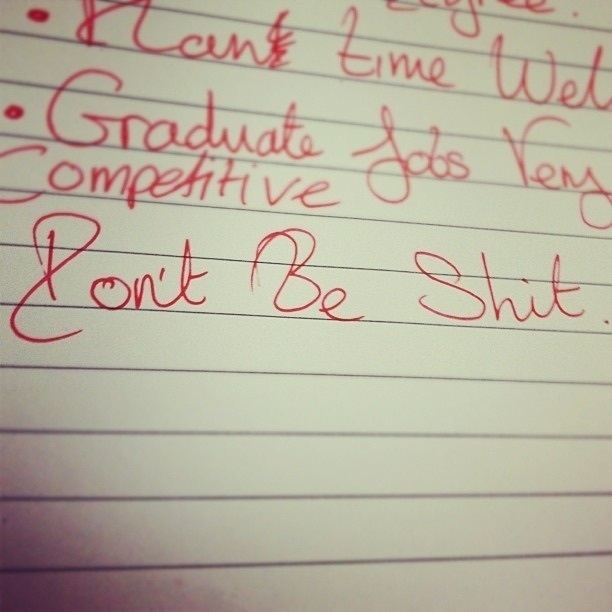 • Plan time Wel
• Graduate Jobs Very
Competitive
Don't Be Shit.